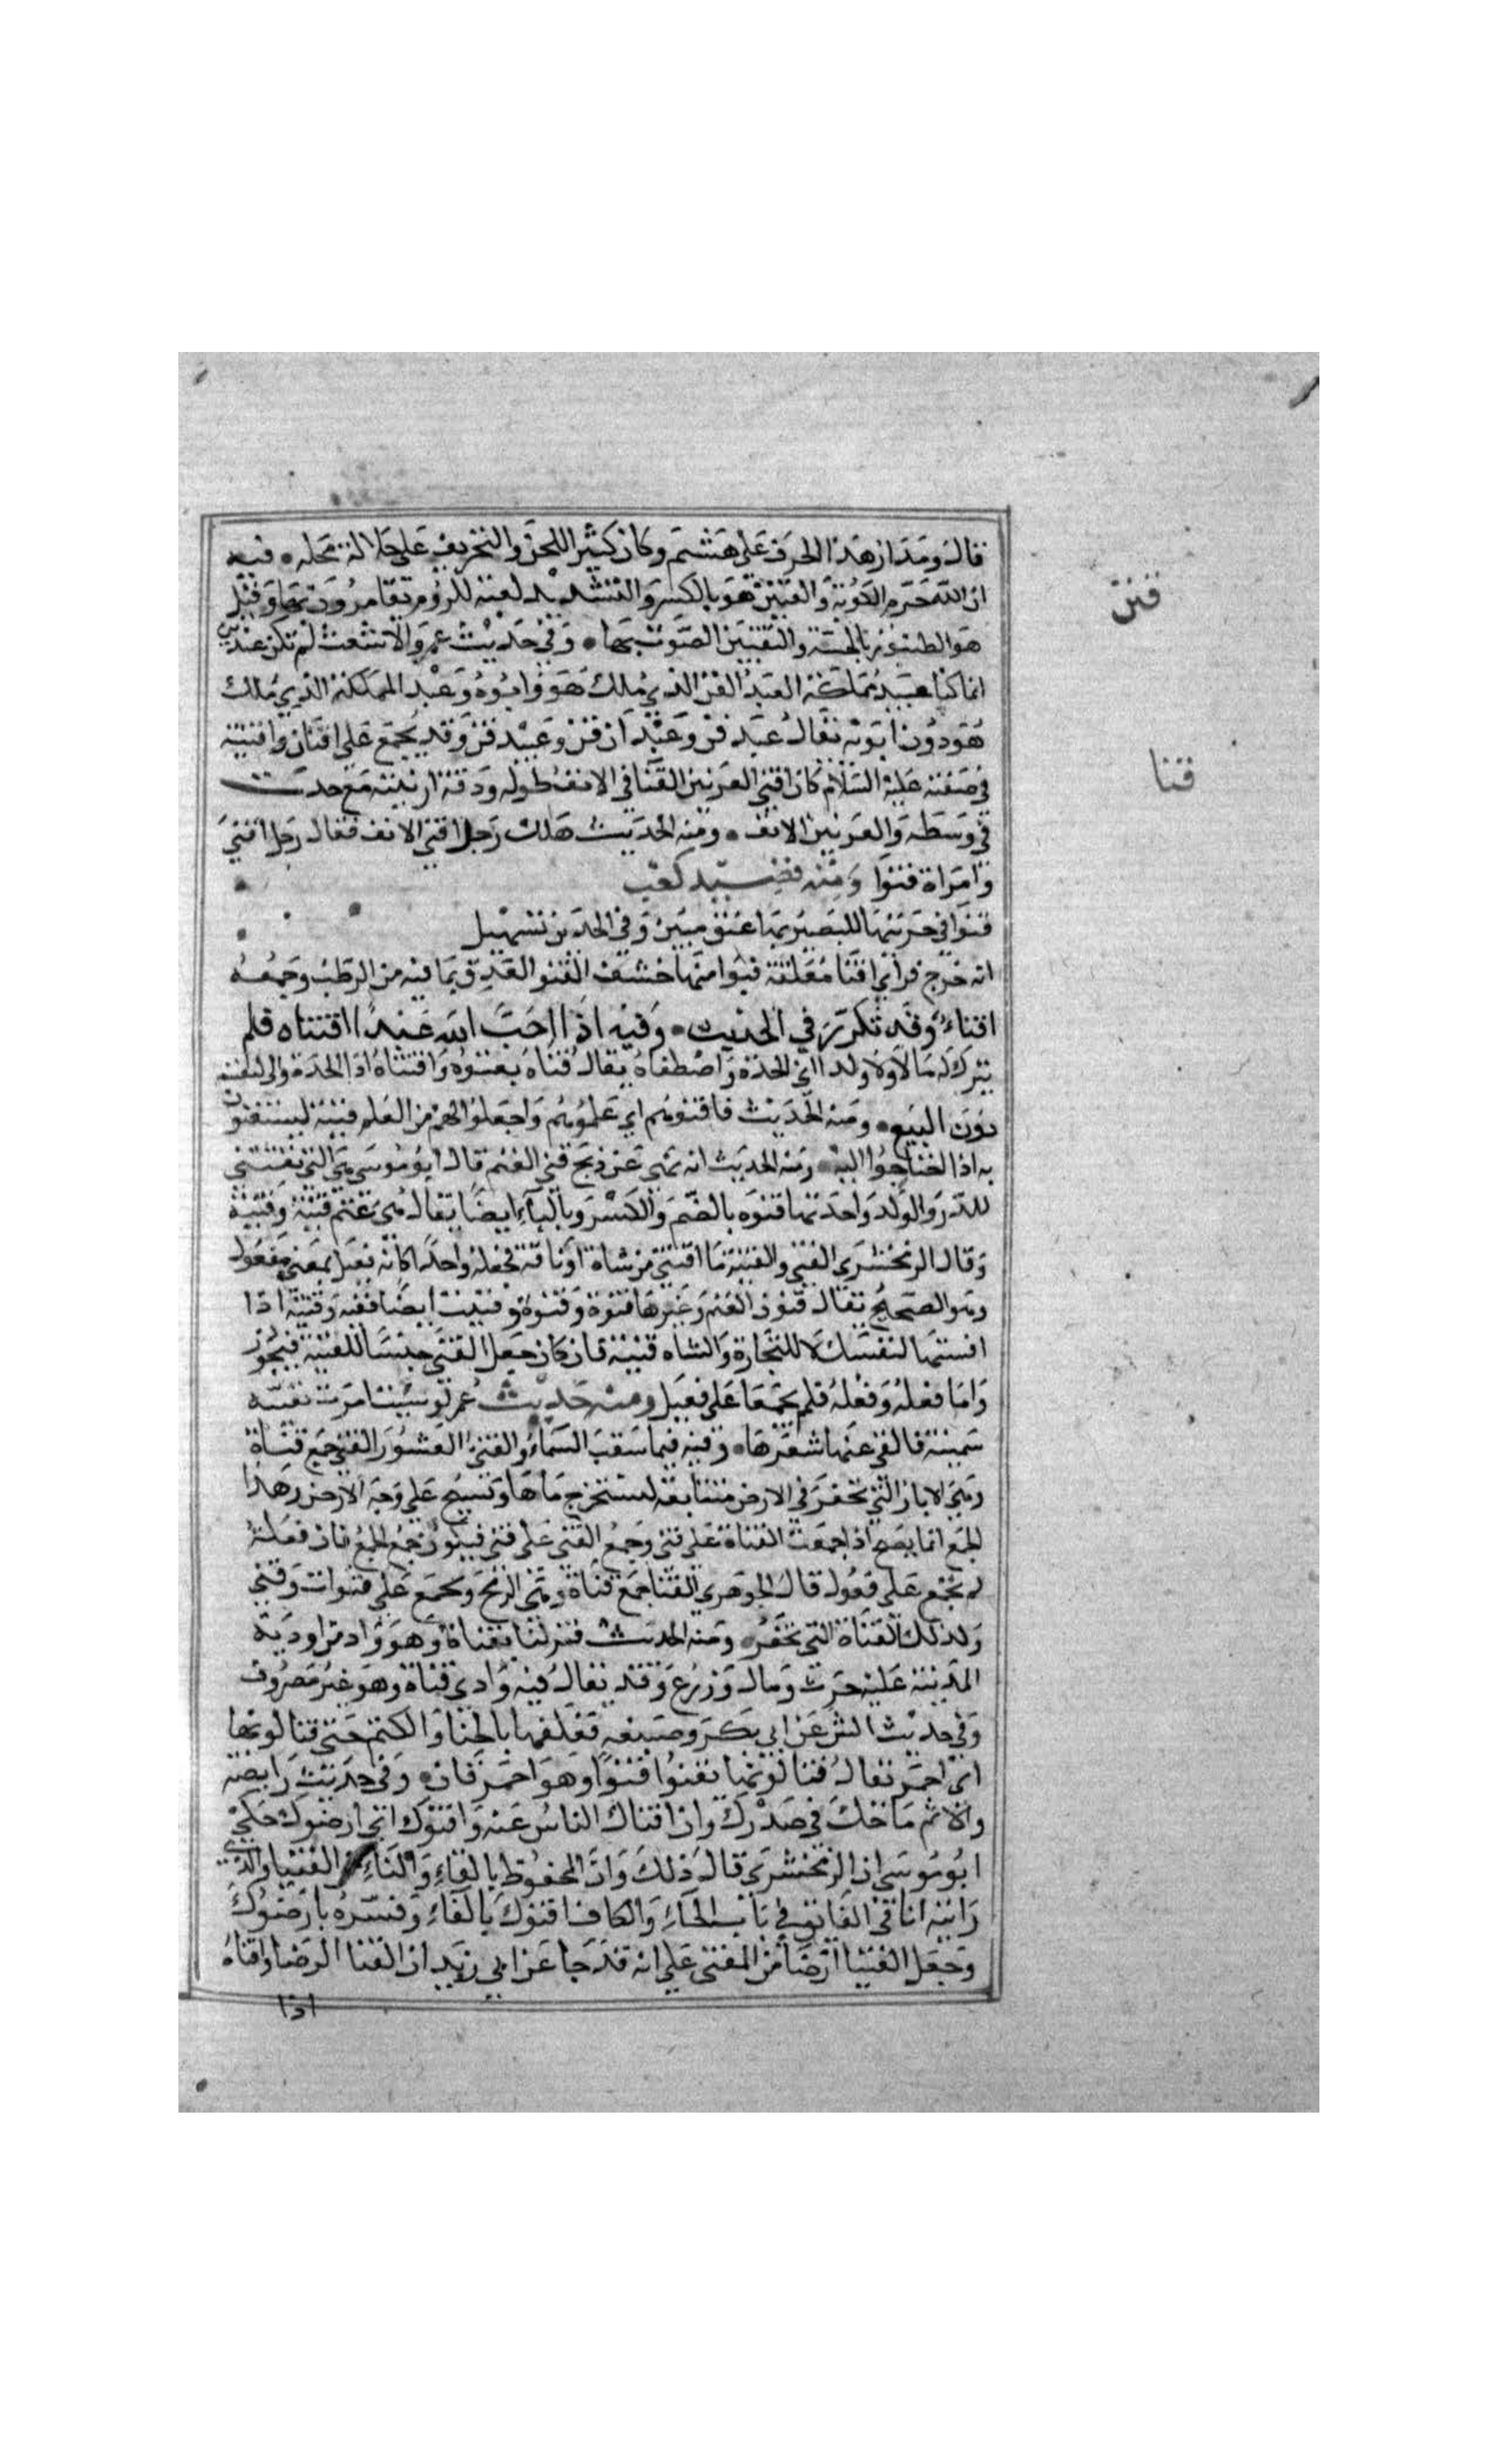 قال ومدار هذا الحرف على هشيم وكان كثير اللحن والتحريف على جلالة محله • فيه
قنن
ان الله حرم الكوبة والقنين هو بالكسر والتشديد لعبة للروم يقامرون بها وقيل
هو الطنبور بالحبشة والتقنين الضرب بها • وفي حديث عمر والاشعث لم نكن عبيد قن
انما كنا عبيد مملكة العبد القن الذي ملك هو وابوه وعبد المملكة الذي ملك
هو دون ابويه يقال عبد قن وعبدان قن وعبيد قن وقد يجمع على اقنان واقنة
قنا
في صفته عليه السلام كان اقنى العرنين القنا في الانف طوله ودقة ارنبته مع حدب
في وسطه والعرنين الانف • ومنه الحديث هلك رجل اقنى الانف فقال رجل اقنى
وامراة قنوا ومنه قصيد كعب
قنوا في حرتيها للبصير بها عتق مبين وفي الخدين تسهيل
انه خرج فراى اقنا معلقة قنوا منها حشف القنو العذق بما فيه من الرطب وجمعه
اقناء وقد تكرر في الحديث • وفيه اذا احب الله عبدا اقتناه فلم
يترك له مالا ولا ولدا اي اتخذه واصطفاه يقال قناه يقنوه واقتناه اذا اتخذه
دون البيع • ومنه الحديث فاقنوهم اي علموهم واجعلوا لهم من العلم قنية يستغنون
به اذا احتاجوا اليه • ومنه الحديث انه نهى عن ذبح قني الغنم قال ابو موسى هي التي تقتنى
للدر والولد واحدتها قنوه بالضم والكسر وبالياء ايضا يقال هي غنم قنية وقنية
وقال الزمخشري القني والقنية ما اقتني من شاة او ناقة فجعله واحدا كانه فعيل بمعنى مفعول
وهو الصحيح يقال قنوت الغنم وغيرها قنوة وقنوة وقنيت ايضا قنية وقنية اذا
اقتنيتها لنفسك لا للتجارة والشاه قنية فان كان جعل القني جنسا للقنية فيجوز
واما فعله وفعله فلم يجمعا على فعيل ومنه حديث عمر لو شيت امرت بقنية
سمينة فالقي عنها شعرها • وفيه فيما سقت السماء والقني العشور القني جمع قناة
وهي الابار التي تحفر في الارض متتابعة ليستخرج ماها وتسيح على وجه الارض وهذا
الجمع انما يصح اذا جمعت القناة على قنى وجمع القنى على قني فيكون جمع الجمع فان فعلة
لم تجمع على فعول قال الجوهري القنا جمع قناة وهي الرمح ويجمع على قنوات وقني
وكذلك القناة التي تحفر • ومنه الحديث فنزلنا بقناة وهو واد من اودية
المدينة عليه حرث ومال وزرع وقد يقال فيه وادي قناة وهو غير مصروف
وفي حديث انس عن ابي بكر وصبغه فغلفها بالحنا والكتم حتى قنا لونها
اي احمر يقال قنا لونها يقنوا قنوا وهو احمر قان • وفي حديث وابصه
والاثم ما حك في صدرك وان اقناك الناس عنه واقنوك اي ارضوك حكى
ابو موسى ان الزمخشري قال ذلك وان المحفوظ بالفاء والتاء من الفتيا والذي
رايته انا في الفايق في باب الحاء والكاف افتوك بالفاء وفسره بارضوك
وجعل الفتيا ارضا من المفتي على انه قد جا عن ابي زيد ان القنا الرضا واقناه
اذا